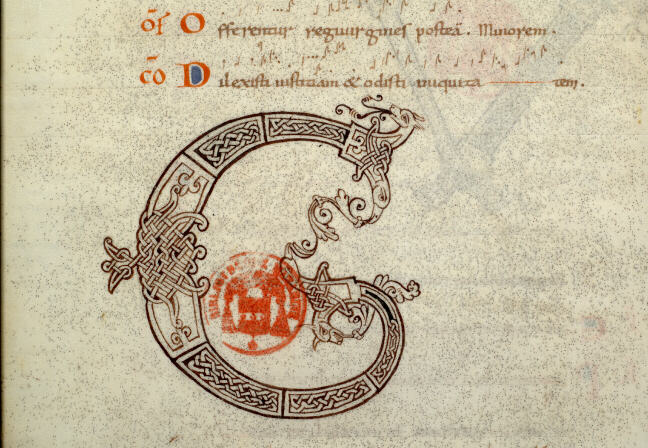 of̄ Offerentur regi uirgines posteaᷓ. Minorem.
cō Dilexisti iustitiam & odisti iniquita tem.
G